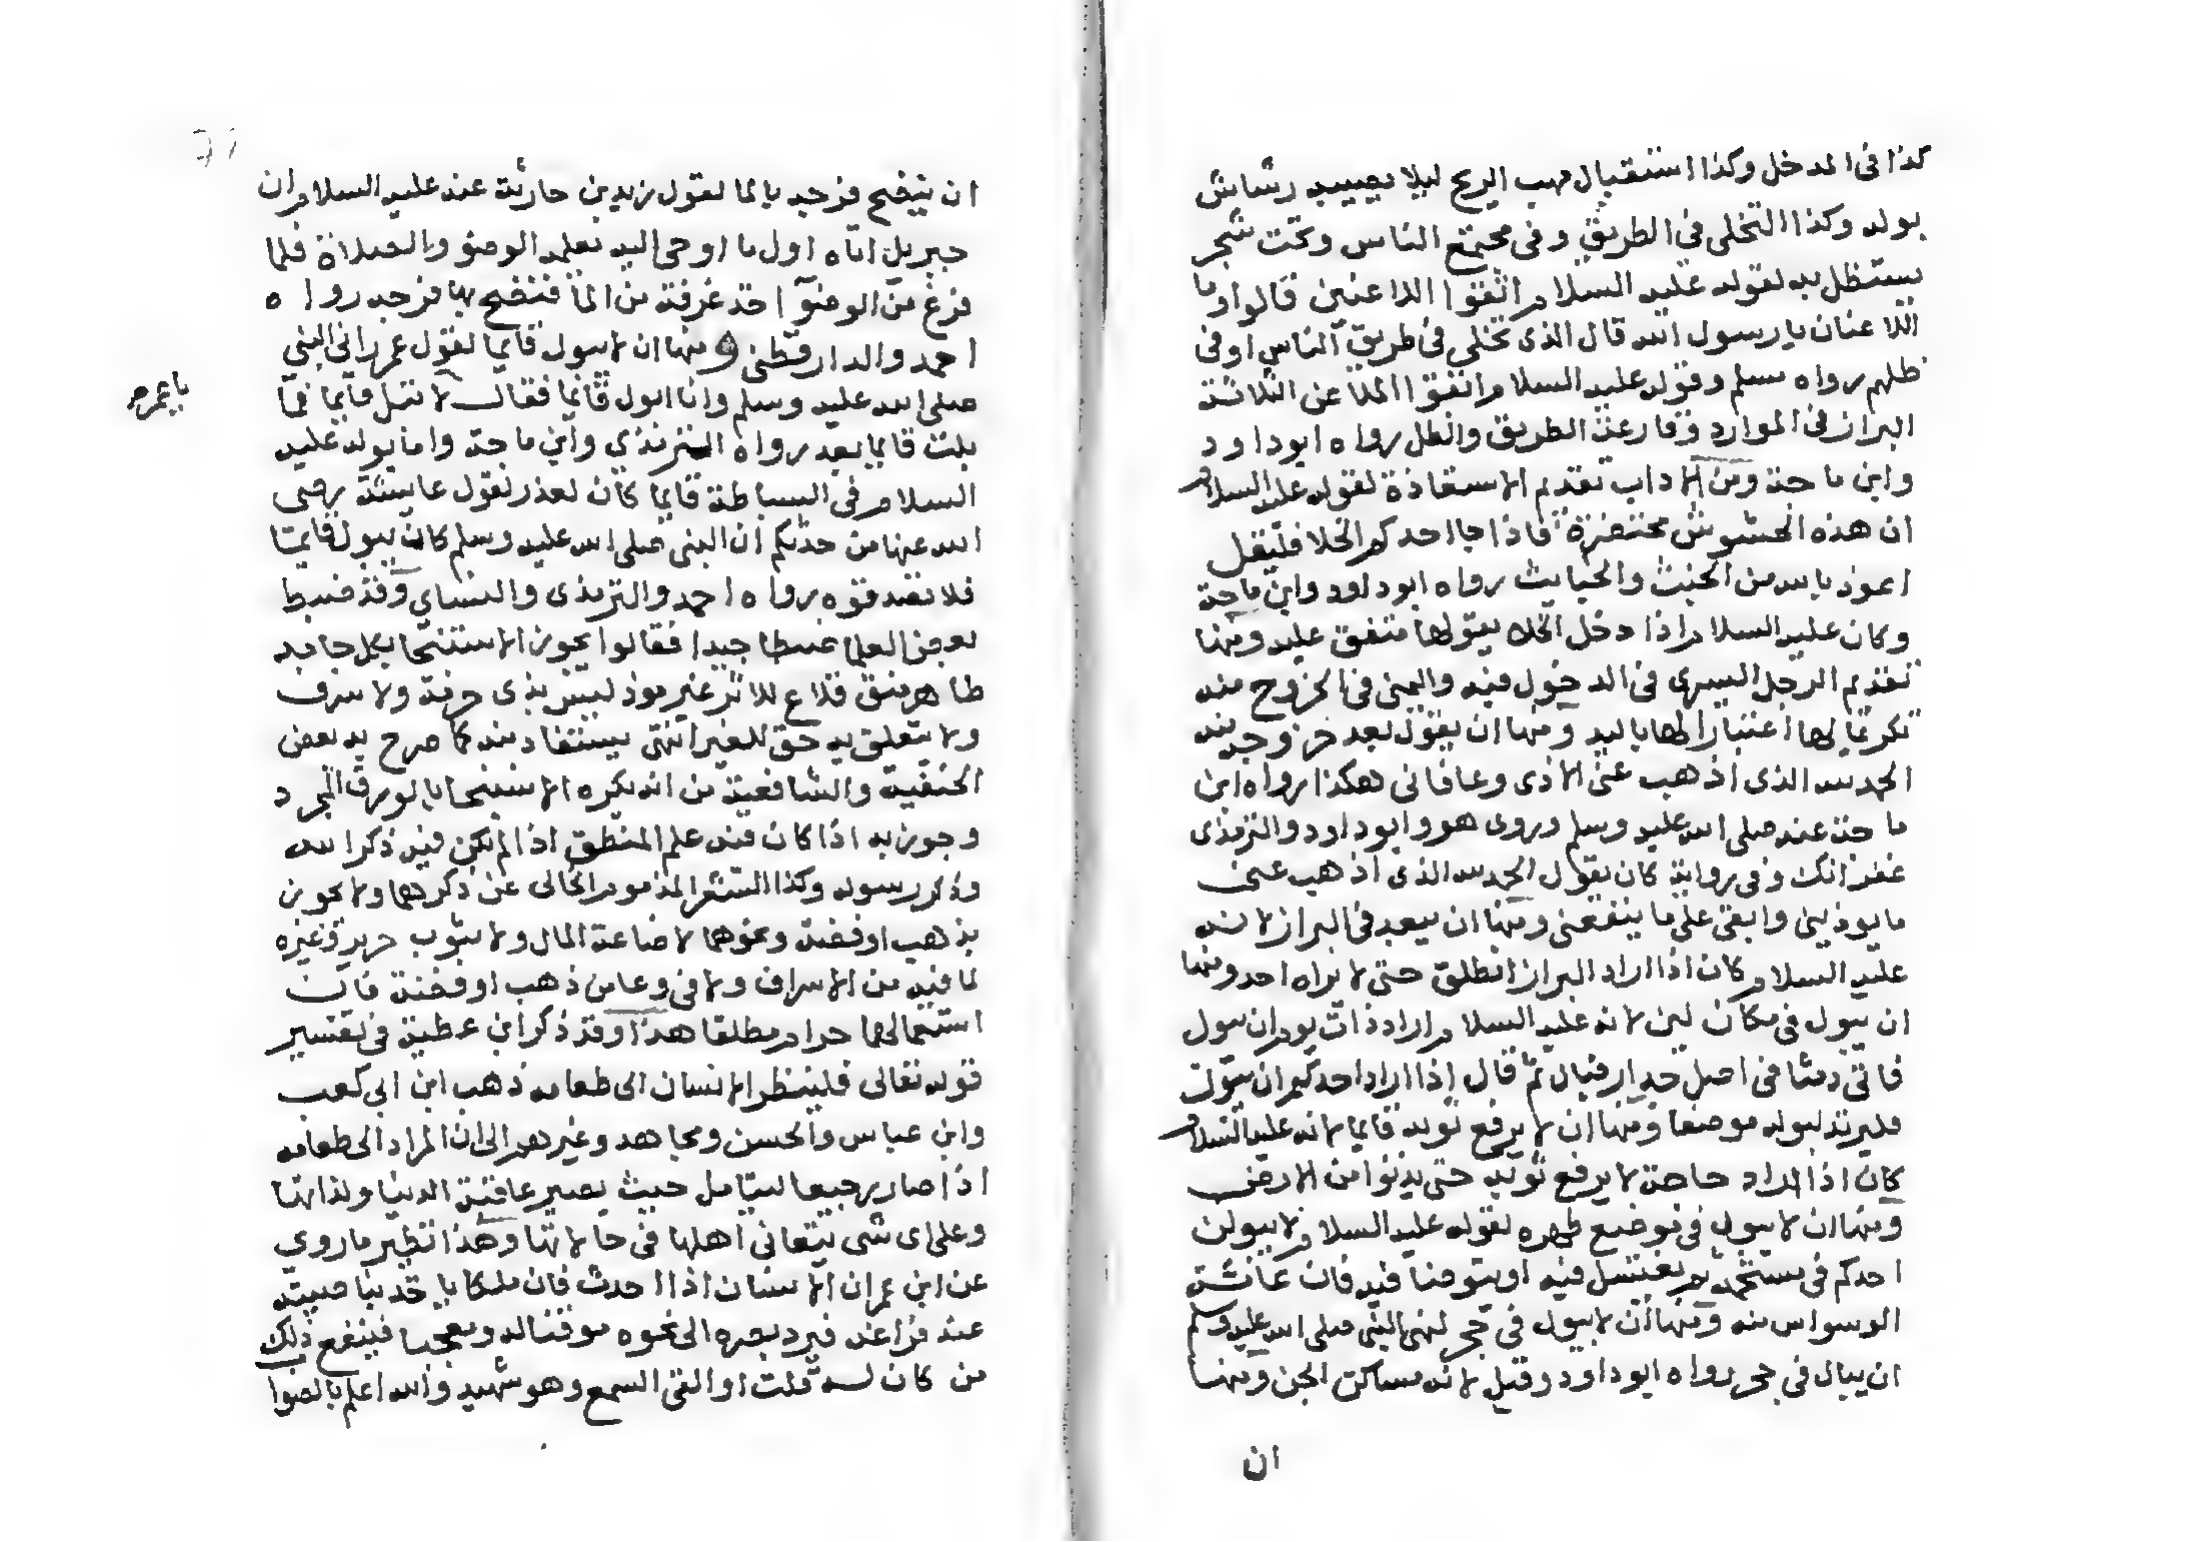 كذا فى المدخل وكذا استقبال مهب الريح ليلا يصيبه رشاش
بوله وكذا التخلى فى الطريق وفى مجتمع الناس وتحت شجر
يستظل به لقوله عليه السلام اتقوا اللاعنين قالوا وما
اللاعنان يا رسول الله قال الذى تخلى فى طريق الناس او فى
ظلهم رواه مسلم وقوله عليه السلام اتقوا الملاعن الثلاثة
البراز فى الموارد وقارعة الطريق والظل رواه ابو داود
وابن ماجة ومن الاداب تقديم الاستعاذة لقوله عليه السلام
ان هذه الحشوش محتضرة فاذا جا احدكم الخلا فليقل
اعوذ بالله من الخبث والخبايث رواه ابو داود وابن ماجة
وكان عليه السلام اذا دخل الخلا يقولها متفق عليه ومنها
تقديم الرجل اليسرى فى الدخول فيه واليمنى فى الخروج منه
تكرتما لها اعتبارا لها باليد ومنها ان يقول بعد خروجه منه
الحمد لله الذى اذهب عنى الاذى وعافانى هكذا رواه ابن
ماجة عنه صلى الله عليه وسلم وروى هو وابو داود والترمذى
غفرانك وفى رواية كان يقول الحمد لله الذى اذهب عنى
ما يوذينى وابقى على ما ينفعنى ومنها ان يبعد فى البراز لانه
عليه السلام كان اذا اراد البراز انطلق حتى لا يراه احد ومنها
ان يبول فى مكان لين لانه عليه السلام اراد ذات يوم ان يبول
فاتى دمثا فى اصل جدار فبال ثم قال اذا اراد احدكم ان يبول
فليرتد لبوله موضعا ومنها ان لا يرفع ثوبه قايما لانه عليه السلام
كان اذا اراد حاجة لا يرفع ثوبه حتى يدنوا من الارض
ومنها ان لا يبول فى موضع طهره لقوله عليه السلام لا يبولن
احدكم فى مستحمه ثم يغتسل فيه او يتوضا فيه فان عامة
الوسواس منه ومنها ان لا يبول فى جحر لنهى النبى صلى الله عليه وسلم
ان يبال فى جحر رواه ابو داود وقيل لانه مساكن الجن ومنها
ان
ان ينضح فرجه بالما لقول زيد بن حارثة عنه عليه السلام ان
جبريل اتاه اول ما اوحى اليه فعلمه الوضو والصلاة فلما
فرغ من الوضو اخذ غرفة من الما فنضح بها فرجه رواه
احمد والدارقطنى ومنها ان لا يبول قايما لقول عمر رانى النبى
صلى الله عليه وسلم وانا ابول قايما فقال لا تبل قايما فما
يا عمر صح
بلت قايما بعد رواه الترمذى وابن ماجة واما بوله عليه
السلام فى السباطة قايما كان لعذر لقول عايشة رضى
الله عنها من حدثكم ان النبى صلى الله عليه وسلم كان يبول قايما
فلا تصدقوه رواه احمد والترمذى والنساى وقد ضبط
بعض العلما ضبطا جيدا فقالوا يجوز الاستنجا بكل جامد
طاهر منق قلاع للاثر غير موذ ليس بذى حرمة ولا سرف
ولا يتعلق به حق للغير انتهى يستفاد منه كما صرح به بعض
الحنفية والشافعية من انه يكره الاستنجا بالورق المجرد
وجوز به اذا كان فيه علم المنطق اذا لم يكن فيه ذكر الله
وذكر رسوله وكذا الشعر المذموم الخالى عن ذكرهما ولا يجوز
بذهب او فضة ونحوهما لاضاعة المال ولا بثوب حرير وغيره
لما فيه من الاسراف ولا فى وعا من ذهب او فضة فان
استعمالهما حرام مطلقا هذا وقد ذكر ابن عطية فى تفسير
قوله تعالى فلينظر الانسان الى طعامه ذهب ابن ابى كعب
وابن عباس والحسن ومجاهد وغيرهم الى ان المراد الى طعامه
اذا صار رجيعا ليتامل حيث يصير عاقبة الدنيا ولذاتها
وعلى اى شى يتفانى اهلها فى حالاتها وهذا نظير ما روى
عن ابن عمر ان الانسان اذا احدث فان ملكا ياخذ بناصيته
عند فراغه فيرد بصره الى نحوه موقفا له ومعجبا فينفع ذلك
من كان له قلب او القى السمع وهو شهيد والله اعلم بالصوا